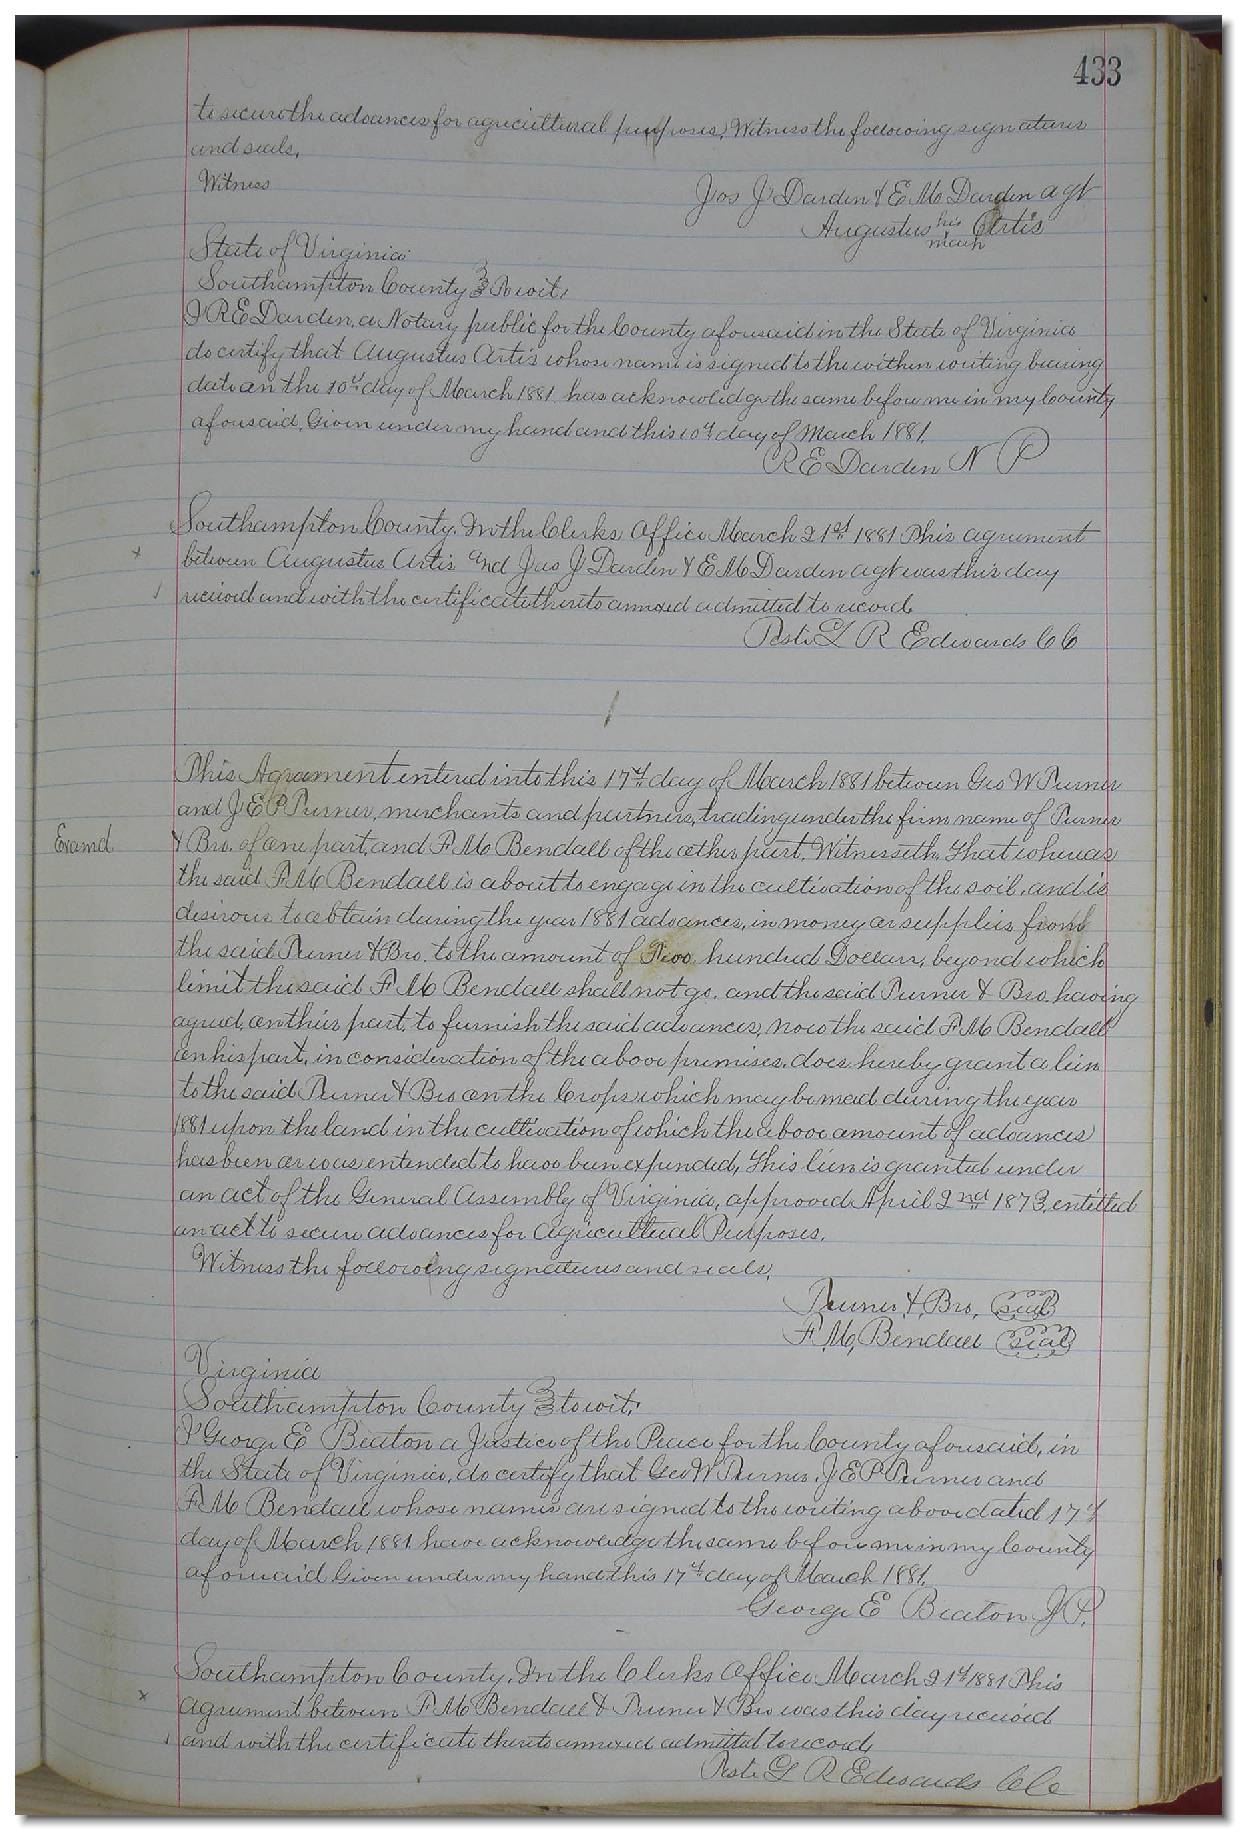 433
to secure the advances for agricultural purposes, Witness the following signatures
and seals,
Witness
Jos J Darden & E M Darden agt
Augustus his Artis
mark
State of Virginia
Southampton County To wit,
I R E Darden, a Notary public for the County aforesaid in the State of Virginia
do certify that Augustus Artis whose name is signed to the within writing bearing
date on the 10th day of March 1881 has acknowledge the same before me in my County
aforesaid, Given under my hand and this 10th day of March 1881,
R E Darden N P
Southampton County, In the Clerks Office March 21st 1881 This agreement
between Augustus Artis and Jas J Darden & E M Darden agt was this day
received and with the certificate thereto annexed admitted to record
Teste L R Edwards C C
This Agreement entered into this 17th day of March 1881 between Geo W Turner
and J E P Turner, merchants and partners, trading under the firm name of Turner
Examd
& Bro. of one part, and F. M. Bendall of the other part, Witnesseth, That whereas
the said F. M. Bendall is about to engage in the cultivation of the soil, and is
desirous to obtain during the year 1881 advances, in money or supplies from
the said Turner & Bro. to the amount of Two hundred Dollars, beyond which
limit the said F M Bendall shall not go. and the said Turner & Bro. having
agreed, on their part, to furnish the said advances, now the said F. M. Bendall
on his part, in consideration of the above premises, does hereby grant a lien
to the said Turner & Bro on the Crops which may be mad during the year
1881 upon the land in the cultivation of which the above amount of advances
has been or was entended to have been expended, This lien is granted under
an act of the General Assembly of Virginia, approved April 2nd 1873, entitled
an act to secure advances for Agricultural Purposes.
Witness the following signatures and seals,
Turner, & Bro, seal
F. M, Bendall seal
Virginia
Southampton County to wit,
I George E Beaton a Justice of the Peace for the County aforesaid, in
the State of Virginia, do certify that Geo W Turner, J E P Turner and
F. M Bendall whose names are signed to the writing above dated 17th
day of March 1881 have acknowledge the same before me in my County
aforesaid Given under my hand this 17th day of March 1881,
George E Beaton J P,
Southampton County, In the Clerks Office March 21st 1881 This
agreement between F M Bendall & Turner & Bro was this day received
and with the certificate thereto annexed admitted to record,
Teste L R Edwards C C